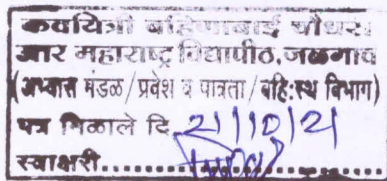 कवयित्री बहिणाबाई चौधरी
उत्तर महाराष्ट्र विद्यापीठ, जळगाव
(अभ्यास मंडळ/प्रवेश व पात्रता/बहि:स्थ विभाग)
पत्र मिळाले दि 21/10/21
स्वाक्षरी..................